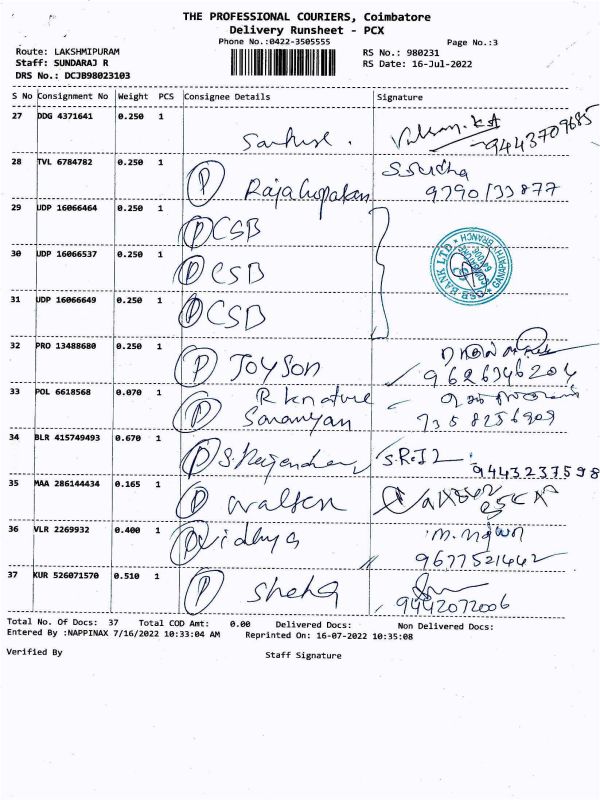 THE PROFESSIONAL COURIERS, Coimbatore
Delivery Runsheet - PCX
Phone No.:0422-3505555 Page No.:3
Route: LAKSHMIPURAM RS No.: 980231
Staff: SUNDARAJ R RS Date: 16-Jul-2022
DRS No.: DCJB98023103
S No Consignment No Weight PCS Consignee Details Signature
27 DDG 4371641 0.250 1
9443709685
28 TVL 6784782 0.250 1 P Rajagopalan S. Sudha
9790133877
29 UDP 16066464 0.250 1 P CSB
30 UDP 16066537 0.250 1 P CSB
CSB BANK LTD * GANAPATHY BRANCH *
31 UDP 16066649 0.250 1 P CSB
32 PRO 13488680 0.250 1 P Joyson
9626346204
33 POL 6618568 0.070 1 P
7358256909
34 BLR 415749493 0.670 1 P S. Rajendran
9443237598
35 MAA 286144434 0.165 1 P
36 VLR 2269932 0.400 1 P Vidhya
9677521442
37 KUR 526071570 0.510 1 P
9442072006
Total No. Of Docs: 37 Total COD Amt: 0.00 Delivered Docs: Non Delivered Docs:
Entered By :NAPPINAX 7/16/2022 10:33:04 AM Reprinted On: 16-07-2022 10:35:08
Verified By Staff Signature